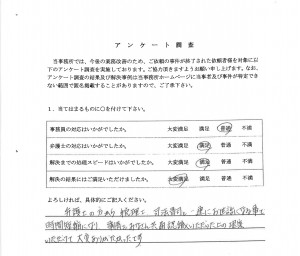 アンケート調査
当事務所では、今後の業務改善のため、ご依頼の事件が終了された依頼者様を対象に以
下のアンケート調査を実施しております。ご協力頂きますようお願い申し上げます。なお、
アンケート調査の結果及び解決事例は当事務所ホームページに当事者及び事件が特定でき
ない範囲で匿名掲載することがありますので、ご了承下さい。
1.当てはまるものに○を付けて下さい。
事務員の対応はいかがでしたか。 大変満足 満足 普通 不満
弁護士の対応はいかがでしたか。 大変満足 満足 普通 不満
解決までの処理スピードはいかがでしたか。 大変満足 満足 普通 不満
解決の結果にはご満足いただけましたか。 大変満足 満足 普通 不満
よろしければ、具体的にご記入ください。
弁護士の方から税理士、司法書士と一連にお世話になる事で
時間 になり
いただけて大変